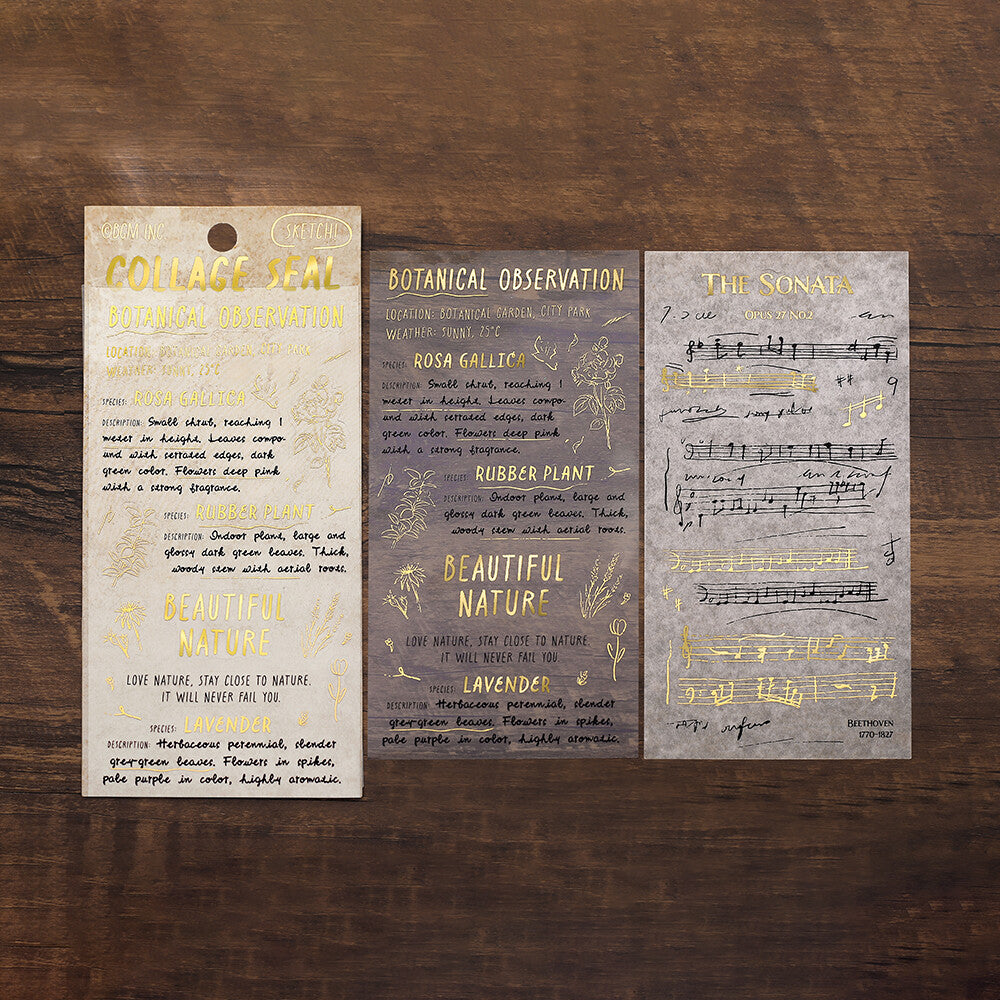 ©BGM INC
SKETCH!
COLLAGE SEAL
BOTANICAL OBSERVATION
LOCATION: BOTANICAL GARDEN, CITY PARK
WEATHER: SUNNY, 25°C
SPECIES: ROSA GALLICA
DESCRIPTION: Small shrub, reaching 1
meter in height. Leaves compo-
und with serrated edges, dark
green color. Flowers deep pink
with a strong fragrance.
SPECIES: RUBBER PLANT
DESCRIPTION: Indoor plant, large and
glossy dark green leaves. Thick,
woody stem with aerial roots.
BEAUTIFUL
NATURE
LOVE NATURE, STAY CLOSE TO NATURE.
IT WILL NEVER FAIL YOU.
SPECIES: LAVENDER
DESCRIPTION: Herbaceous perennial, slender
grey-green leaves. Flowers in spikes,
pale purple in color, highly aromatic.
BOTANICAL OBSERVATION
LOCATION: BOTANICAL GARDEN, CITY PARK
WEATHER: SUNNY, 25°C
SPECIES: ROSA GALLICA
DESCRIPTION: Small shrub, reaching 1
meter in height. Leaves compo-
und with serrated edges, dark
green color. Flowers deep pink
with a strong fragrance.
SPECIES: RUBBER PLANT
DESCRIPTION: Indoor plant, large and
glossy dark green leaves. Thick,
woody stem with aerial roots.
BEAUTIFUL
NATURE
LOVE NATURE, STAY CLOSE TO NATURE.
IT WILL NEVER FAIL YOU
SPECIES: LAVENDER
DESCRIPTION: Herbaceous perennial, slender
grey-green leaves. Flowers in spikes,
pale purple in color, highly aromatic.
THE SONATA
OPUS 27 NO.2
BEETHOVEN
1770-1827